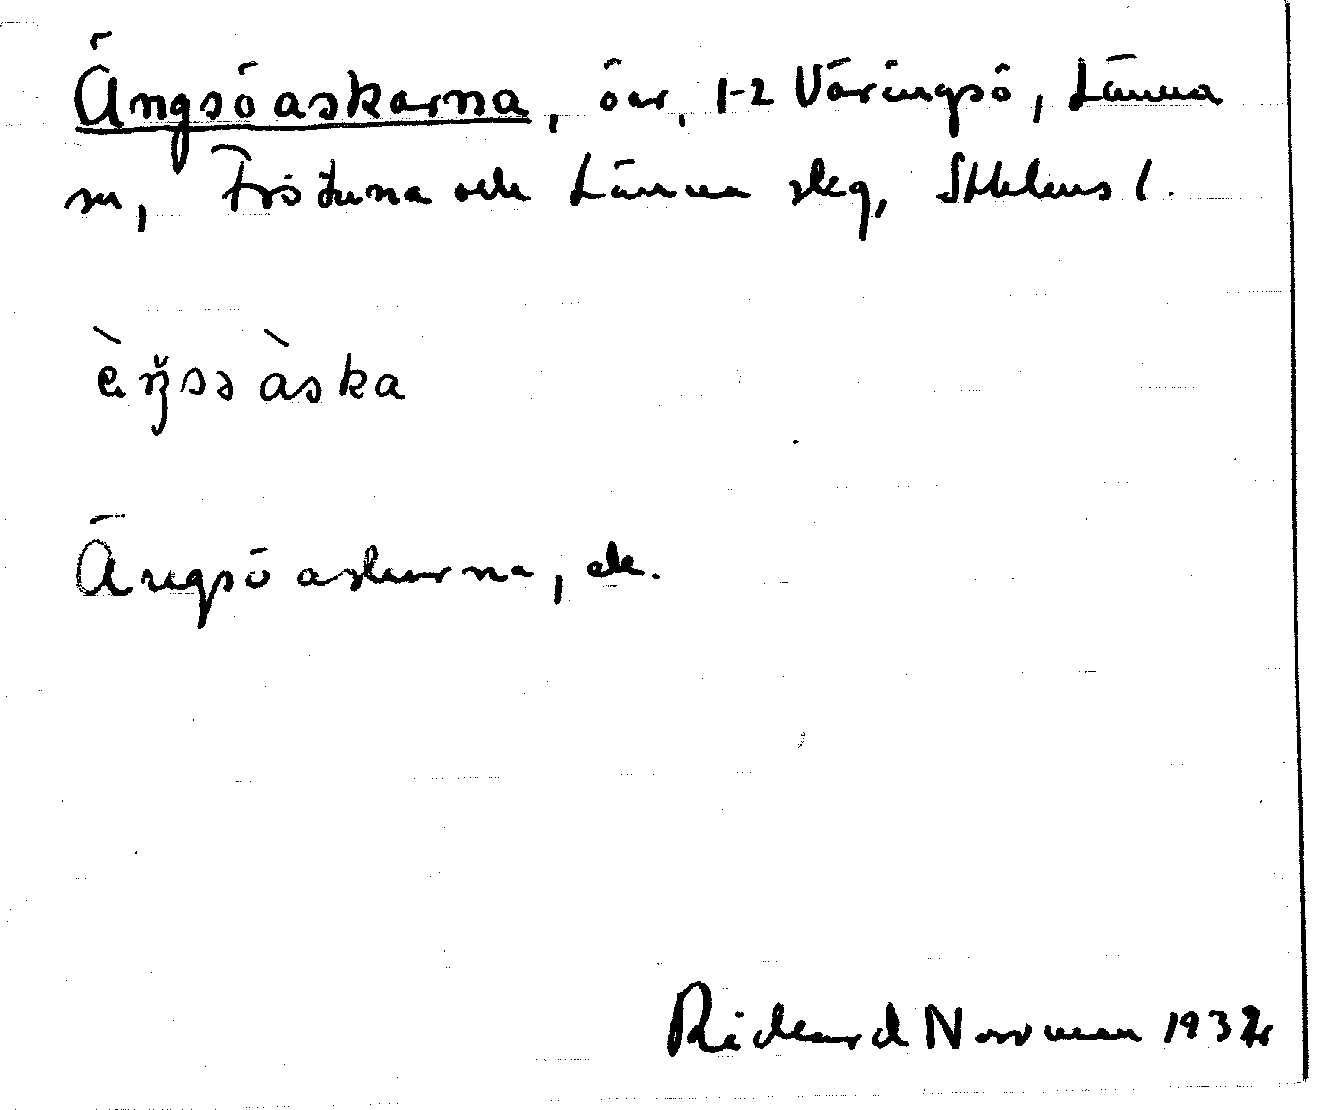 Ängsöaskarna, öar, 1-2 Väringsö, Länna
sn, Frötuna och Länna skg, Sthlms l.
èŋ̌sə àska
Ängsöaskarna, ek.
Rickard Norrman 1932